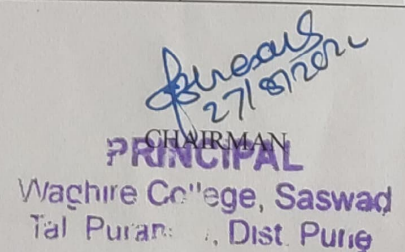 27/8/202
CHAIRMAN
PRINCIPAL
Waghire College, Saswad
Tal Puran , Dist Pune